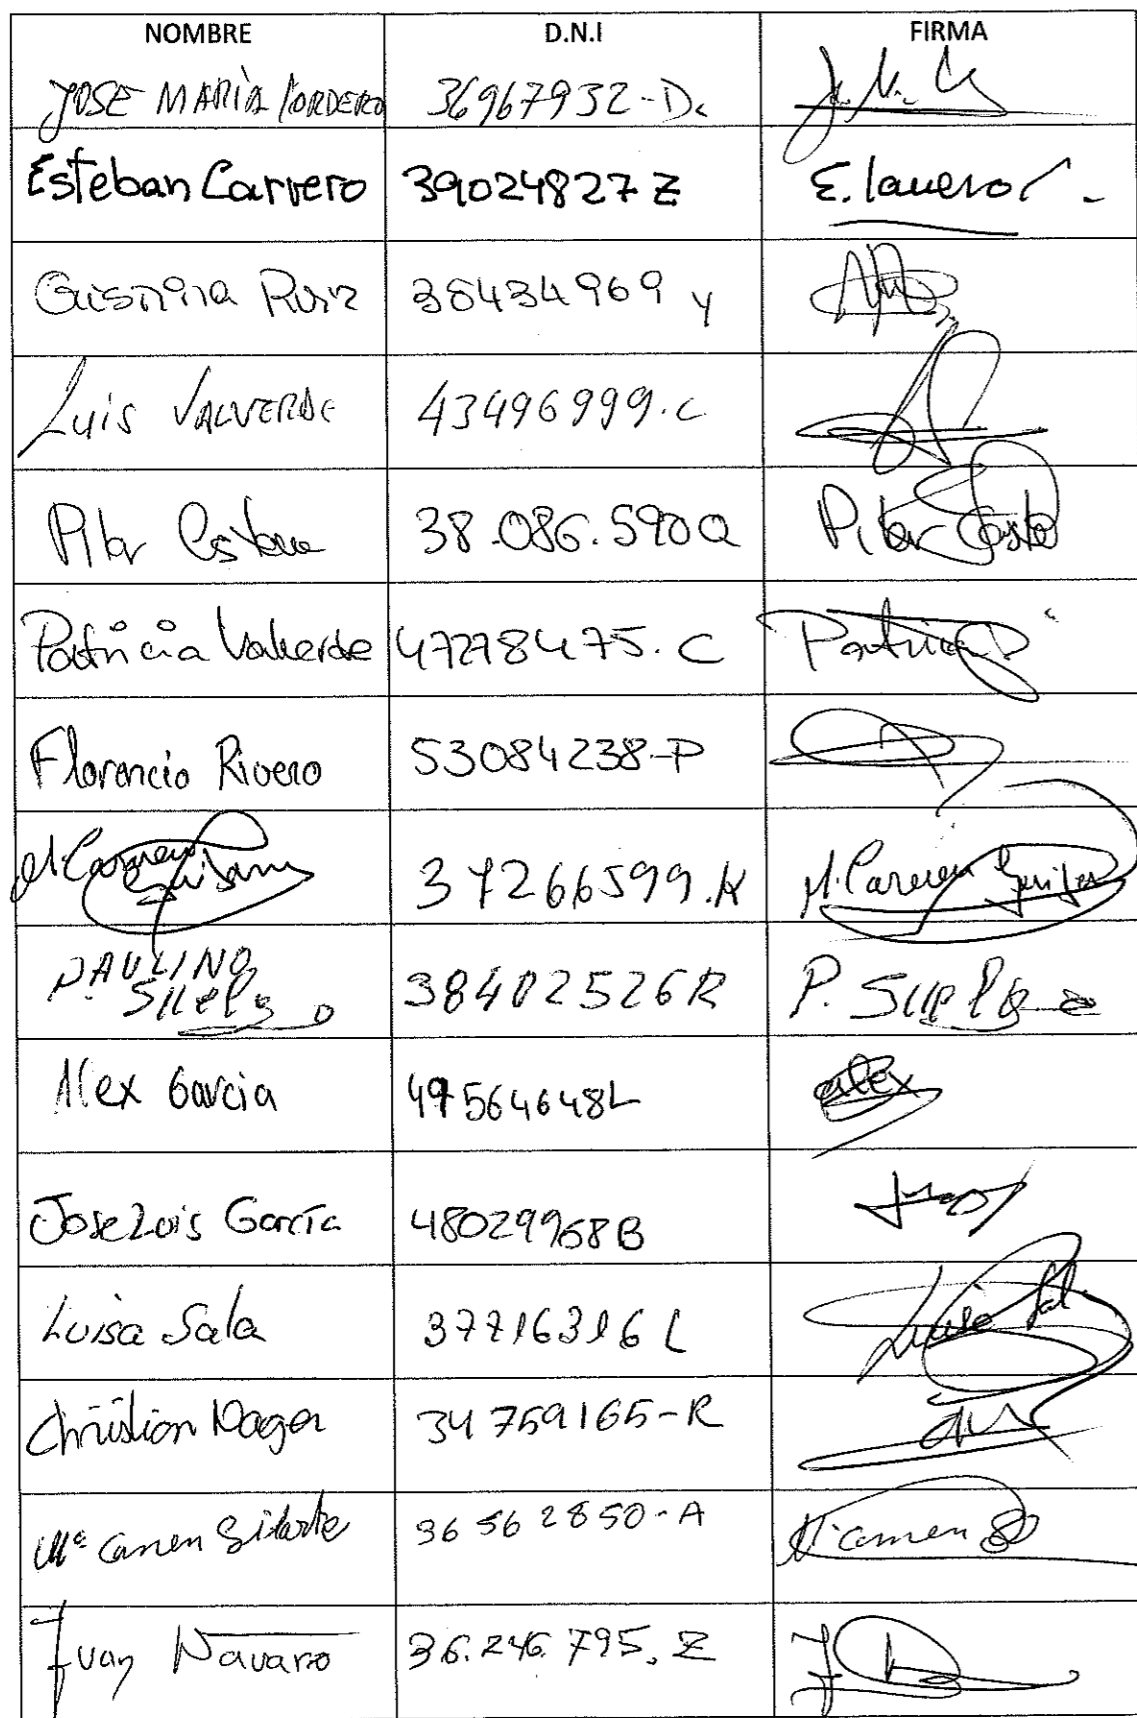 NOMBRE D.N.I FIRMA
JOSE MARÍA CORDERO 36967932-D.
Esteban Carrero 39024827Z E. Carrero
Cristina Ruiz 38434969 y
Luis VALVERDE 43496999.C
Pilar Esteve 38.086.590Q Pilar Esteve
Patricia Valverde 47278475.C Patricia
Florencio Rivero 53084238-P
M. Carmen 37266599.K M. Carmen
PAULINO
SUELO 38402526R P. SUELO
Alex Garcia 49564648L alex
Jose Luis García 48029968B
Luisa Sala 37716316L Luisa Sala
Christian 34759165-R
Mª Carmen Gilarte 36562850-A M Carmen
Juan Navarro 36.246.795.Z